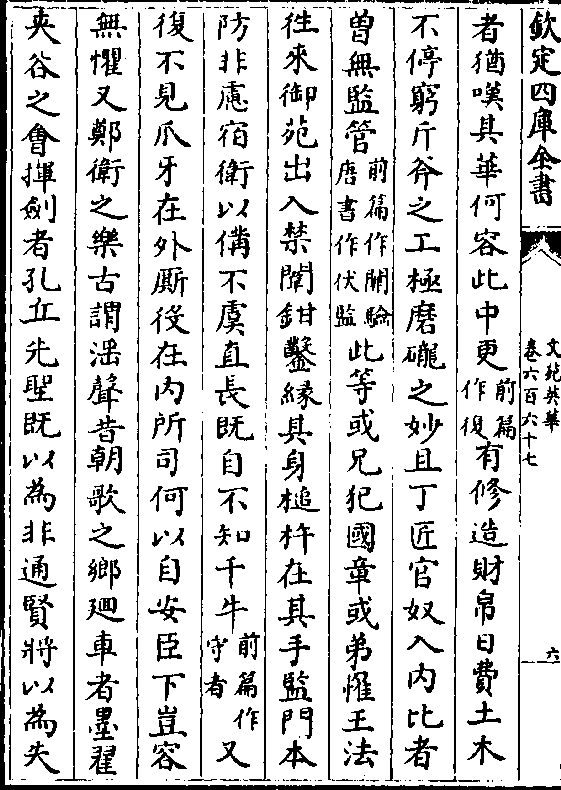 欽定四庫全書
文苑英華
卷六百六十七
六
者猶嘆其華何容此中更前篇作後有修造財帛日費土木
不停窮斤斧之工極磨礲之妙且丁匠官奴入内比者
曾無監管前篇作關驗唐書作伏監此等或兄犯國章或弟懼王法
徃來御苑出入禁闈鉗鑿緣其身槌杵在其手監門本
防非慮宿衛以備不虞直長既自不知千牛前篇作守者又
復不見爪牙在外厮役在内所司何以自安臣下豈容
無懼又鄭衛之樂古謂淫聲昔朝歌之鄉廻車者墨翟
夾谷之會揮劍者孔丘先聖既以為非通賢將以為失